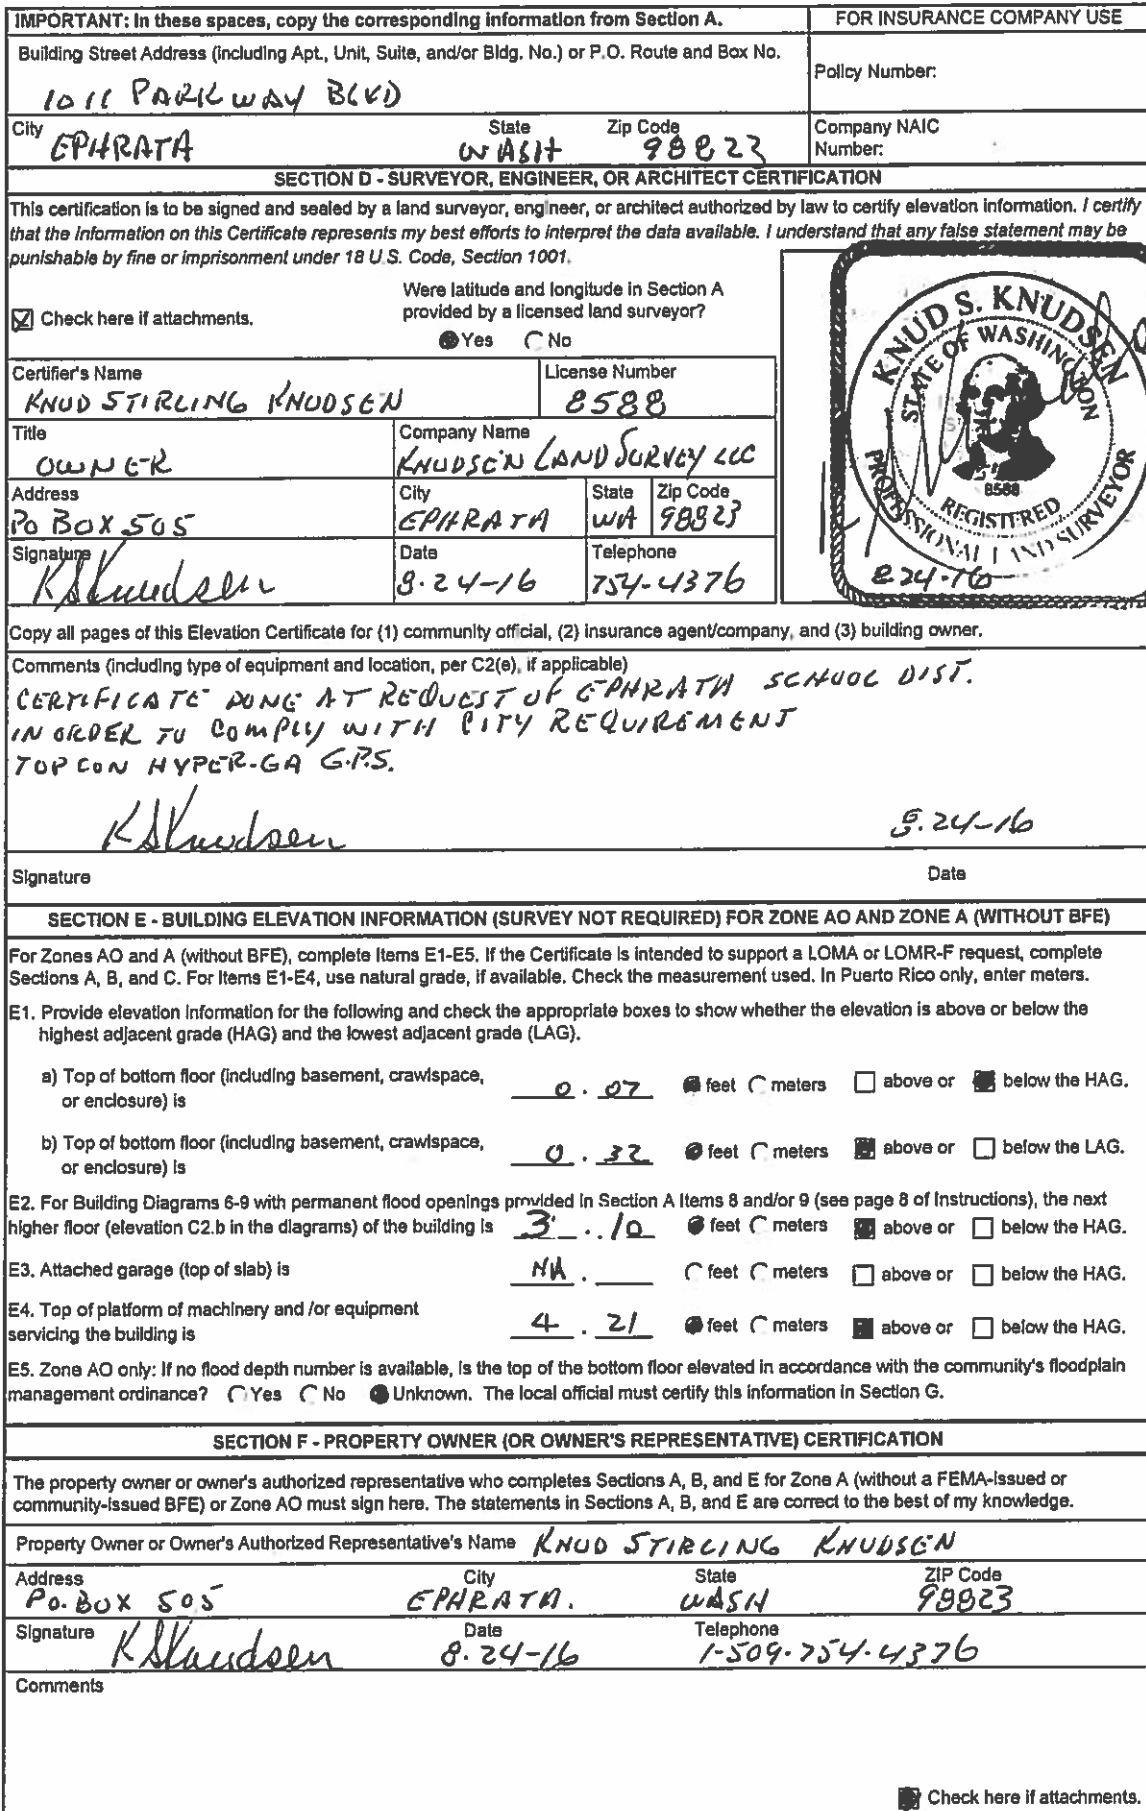 IMPORTANT: In these spaces, copy the corresponding information from Section A.
FOR INSURANCE COMPANY USE
Building Street Address (including Apt., Unit, Suite, and/or Bldg. No.) or P.O. Route and Box No.
1011 PARKWAY BLVD
Policy Number:
City
EPHRATA
State
WASH
Zip Code
98823
Company NAIC
Number:
SECTION D - SURVEYOR, ENGINEER, OR ARCHITECT CERTIFICATION
This certification is to be signed and sealed by a land surveyor, engineer, or architect authorized by law to certify elevation information. I certify
that the information on this Certificate represents my best efforts to interpret the data available. I understand that any false statement may be
punishable by fine or imprisonment under 18 U.S. Code, Section 1001.
Check here if attachments.
Were latitude and longitude in Section A
provided by a licensed land surveyor?
Yes No
Certifier's Name
KNUD STIRLING KNUDSEN
License Number
8588
Title
OWNER
Company Name
KNUDSEN LAND SURVEY LLC
Address
PO BOX 505
City
EPHRATA
State
WA
Zip Code
98823
Signature
KSKnudsen
Date
8-24-16
Telephone
754-4376
KNUD S. KNUDSEN
STATE OF WASHINGTON
8588
REGISTERED
PROFESSIONAL LAND SURVEYOR
8-24-16
Copy all pages of this Elevation Certificate for (1) community official, (2) insurance agent/company, and (3) building owner.
Comments (including type of equipment and location, per C2(e), if applicable)
CERTIFICATE DONE AT REQUEST OF EPHRATA SCHOOL DIST.
IN ORDER TO COMPLY WITH CITY REQUIREMENT
TOPCON HYPER-GA G.P.S.
KSKnudsen
8-24-16
Signature
Date
SECTION E - BUILDING ELEVATION INFORMATION (SURVEY NOT REQUIRED) FOR ZONE AO AND ZONE A (WITHOUT BFE)
For Zones AO and A (without BFE), complete Items E1-E5. If the Certificate is intended to support a LOMA or LOMR-F request, complete
Sections A, B, and C. For Items E1-E4, use natural grade, if available. Check the measurement used. In Puerto Rico only, enter meters.
E1. Provide elevation information for the following and check the appropriate boxes to show whether the elevation is above or below the
highest adjacent grade (HAG) and the lowest adjacent grade (LAG).
a) Top of bottom floor (including basement, crawlspace,
or enclosure) is
0 . 07 feet meters above or below the HAG.
b) Top of bottom floor (including basement, crawlspace,
or enclosure) is
0 . 32 feet meters above or below the LAG.
E2. For Building Diagrams 6-9 with permanent flood openings provided in Section A Items 8 and/or 9 (see page 8 of Instructions), the next
higher floor (elevation C2.b in the diagrams) of the building is 3 . 10 feet meters above or below the HAG.
E3. Attached garage (top of slab) is NA . feet meters above or below the HAG.
E4. Top of platform of machinery and /or equipment
servicing the building is 4 . 21 feet meters above or below the HAG.
E5. Zone AO only: If no flood depth number is available, is the top of the bottom floor elevated in accordance with the community's floodplain
management ordinance? Yes No Unknown. The local official must certify this information in Section G.
SECTION F - PROPERTY OWNER (OR OWNER'S REPRESENTATIVE) CERTIFICATION
The property owner or owner's authorized representative who completes Sections A, B, and E for Zone A (without a FEMA-issued or
community-issued BFE) or Zone AO must sign here. The statements in Sections A, B, and E are correct to the best of my knowledge.
Property Owner or Owner's Authorized Representative's Name KNUD STIRLING KNUDSEN
Address
P.O. BOX 505
City
EPHRATA.
State
WASH
ZIP Code
98823
Signature
KSKnudsen
Date
8-24-16
Telephone
1-509-754-4376
Comments
Check here if attachments.